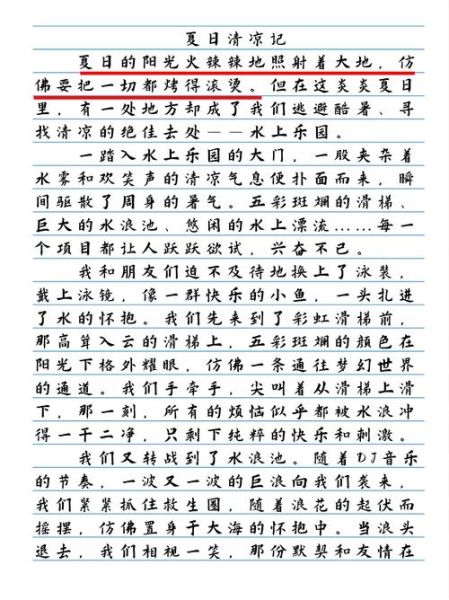 夏日清凉记
夏日的阳光火辣辣地照射着大地，仿
佛要把一切都烤得滚烫。但在这炎炎夏日
里，有一处地方却成了我们逃避酷暑、寻
找清凉的绝佳去处——水上乐园。
一踏入水上乐园的大门，一股夹杂着
水雾和欢笑声的清凉气息便扑面而来，瞬
间驱散了周身的暑气。五彩斑斓的滑梯、
巨大的水浪池、悠闲的水上漂流……每一
个项目都让人跃跃欲试，兴奋不已。
我和朋友们迫不及待地换上了泳装，
戴上泳镜，像一群快乐的小鱼，一头扎进
了水的怀抱。我们先来到了彩虹滑梯前，
那高耸入云的滑梯上，五彩斑斓的颜色在
阳光下格外耀眼，仿佛一条通往梦幻世界
的通道。我们手牵手，尖叫着从滑梯上滑
下，那一刻，所有的烦恼似乎都被水浪冲
得一干二净，只剩下纯粹的快乐和刺激。
我们又转战到了水浪池。随着DJ音乐
的节奏，一波又一波的巨浪向我们袭来，
我们紧紧抓住救生圈，随着浪花的起伏而
摇摆，仿佛置身于大海的怀抱中。当浪头
退去，我们相视一笑，那份默契和友情在